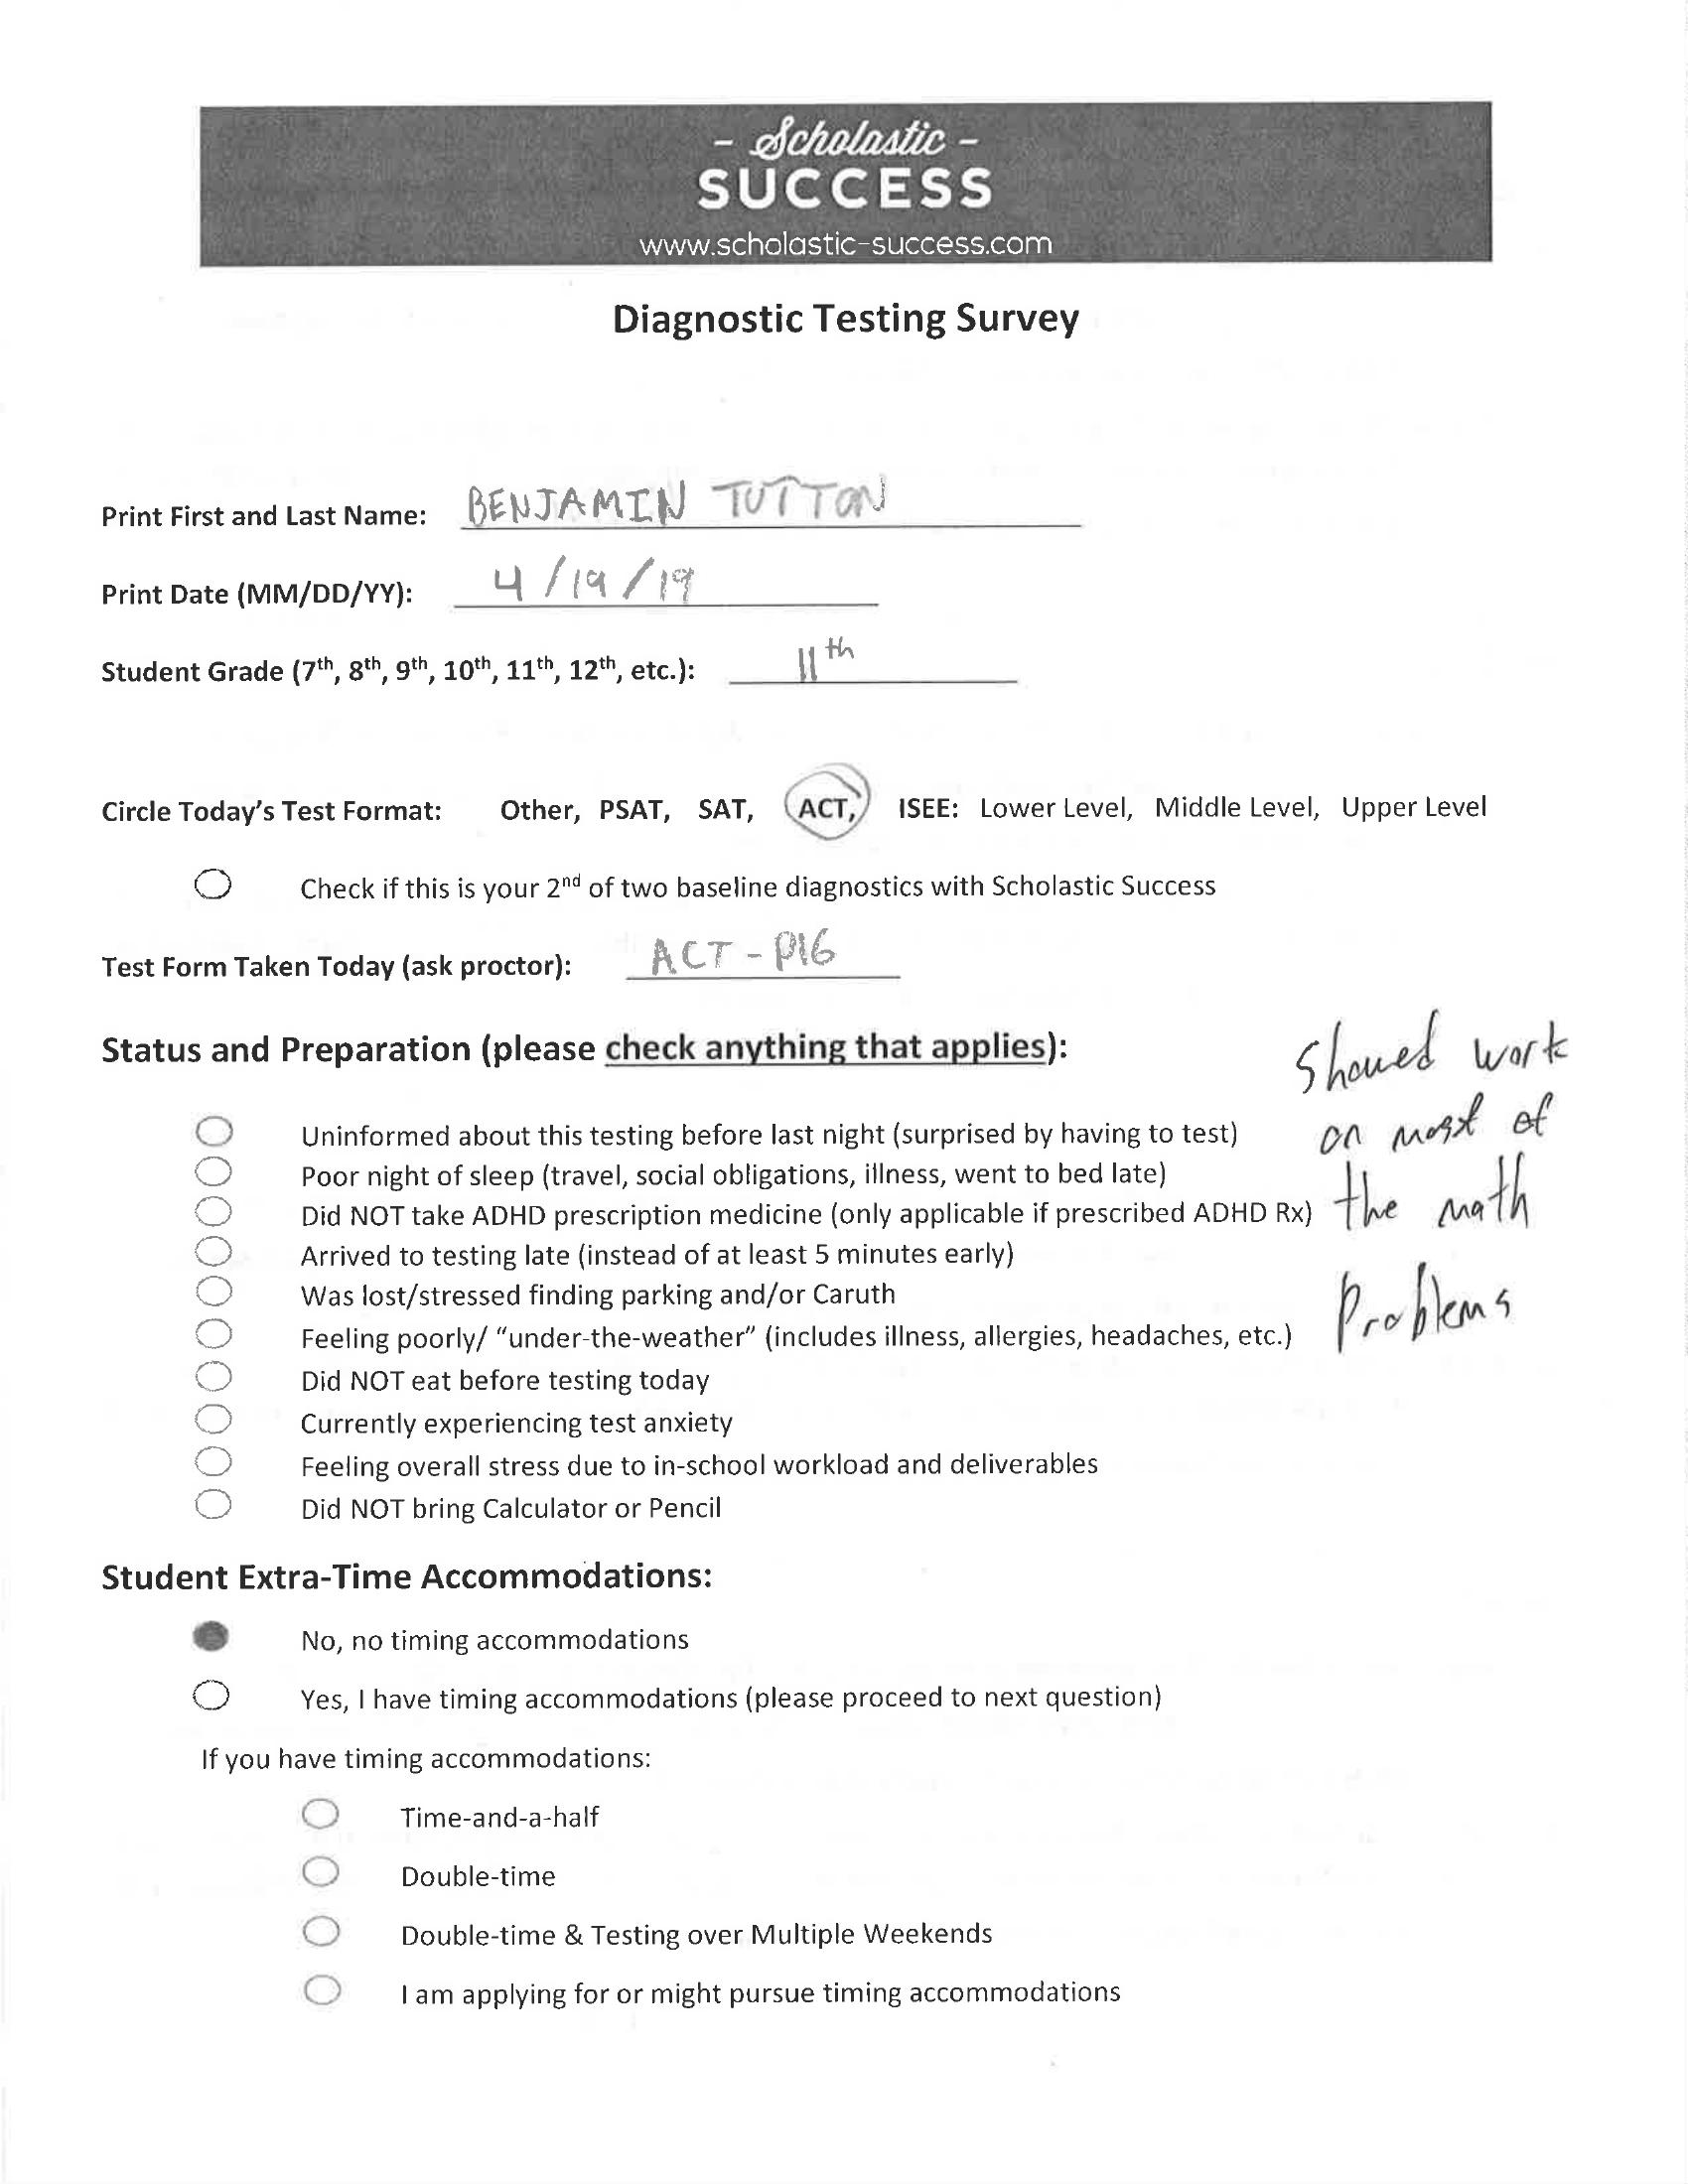 - Scholastic -
SUCCESS
www.scholastic-success.com
Diagnostic Testing Survey
Print First and Last Name: BENJAMIN TUTTON
Print Date (MM/DD/YY): 4/19/19
Student Grade (7th, 8th, 9th, 10th, 11th, 12th, etc.): 11th
Circle Today's Test Format: Other, PSAT, SAT, ACT, ISEE: Lower Level, Middle Level, Upper Level
Check if this is your 2nd of two baseline diagnostics with Scholastic Success
Test Form Taken Today (ask proctor): ACT - P16
Status and Preparation (please check anything that applies):
Showed work
on most of
the math
Problems
Uninformed about this testing before last night (surprised by having to test)
Poor night of sleep (travel, social obligations, illness, went to bed late)
Did NOT take ADHD prescription medicine (only applicable if prescribed ADHD Rx)
Arrived to testing late (instead of at least 5 minutes early)
Was lost/stressed finding parking and/or Caruth
Feeling poorly/ "under-the-weather" (includes illness, allergies, headaches, etc.)
Did NOT eat before testing today
Currently experiencing test anxiety
Feeling overall stress due to in-school workload and deliverables
Did NOT bring Calculator or Pencil
Student Extra-Time Accommodations:
No, no timing accommodations
Yes, I have timing accommodations (please proceed to next question)
If you have timing accommodations:
Time-and-a-half
Double-time
Double-time & Testing over Multiple Weekends
I am applying for or might pursue timing accommodations